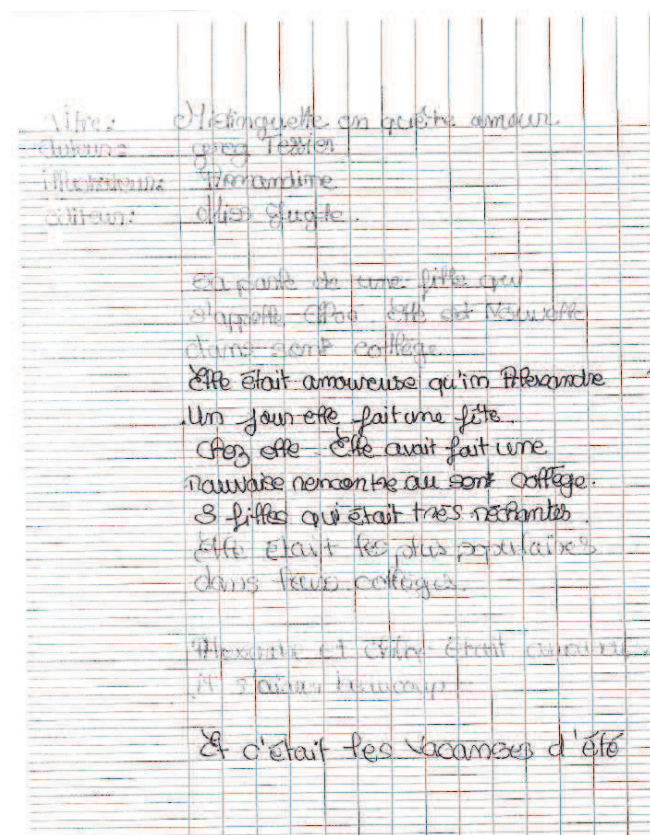 Titre: Mistinguette en quête amour
auteur: greg Tessier
illustrateur: Amandine
éditeur: Miss Jungle.
ça parle de une fille qui
s'appelle Chloé. Elle est Nouvelle
dans sont collège.
Elle était amoureuse qu'im Alexandre
Un jour elle fait une fête.
Chez elle. Elle avait fait une
mauvaise rencontre au sont collège.
3 filles qui était très méchantes.
Elle était les plus populaires
dans leurs collèges.
et Chloé était
beaucoup
Et c'était les vacances d'été